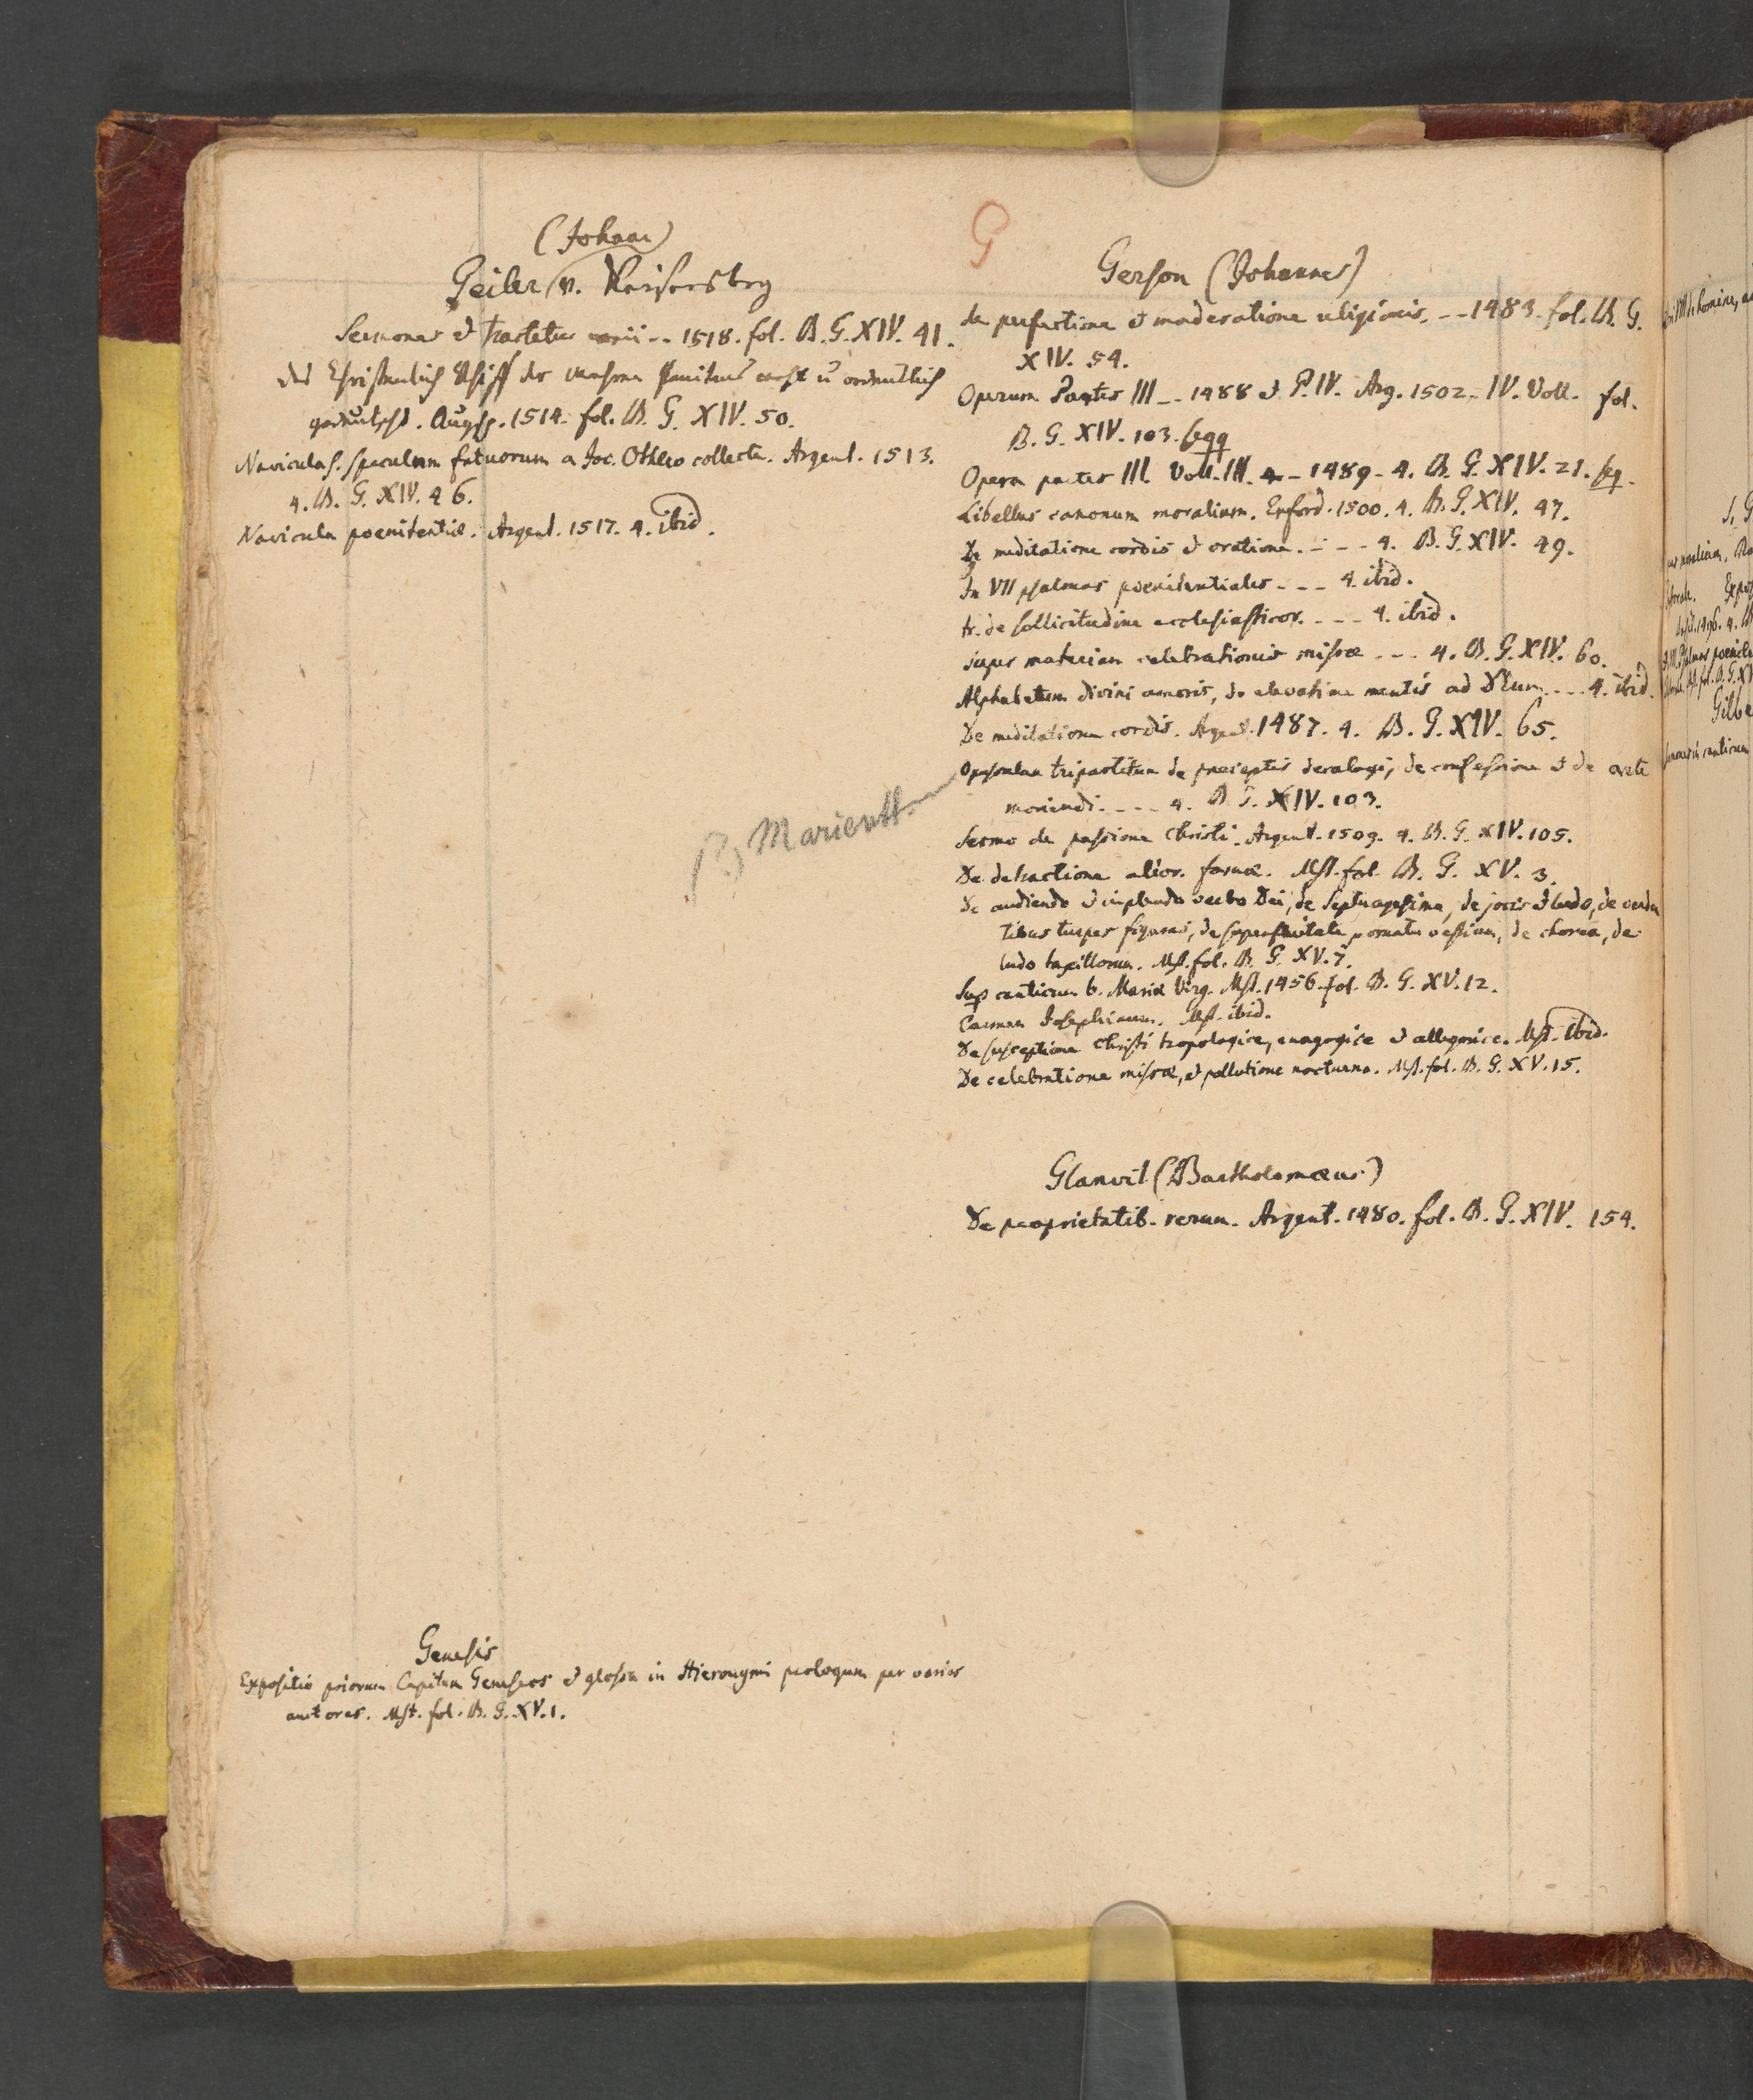 G
(Johann)
Geiler v. Keisersberg
Sermones et tractatus varii -- 1518. fol. B. G. XIV. 41.
Das Christenlich Schiff der waren Penitenz
gedeutscht. Augsp. 1514. fol. B. G. XIV. 50.
Navicula s. speculum fatuorum a Jac. Othero collecta. Argent. 1513.
4. B. G. XIV. 46.
Navicula poenitentiæ. Argent. 1517. 4. ibid.
Genesis
Expositio priorum Capitum Geneseos et glossa in Hieronymi prologum per varios
autores. Mst. fol. B. G. XV. 1.
Gerson (Johannes)
de perfectione et moderatione religionis. -- 1483. fol. B. G.
XIV. 54.
Operum Partes III -- 1488 et P. IV. Arg. 1502 - IV. Voll. fol.
B. G. XIV. 103. seqq
Opera partes III. Voll. III. -- 1489 - 4. B. G. XIV. 21. sq.
Libellus canonum moralium. Erford. 1500. 4. B. G. XIV. 47.
De meditatione cordis et oratione. - - - 4. B. G. XIV. 49.
In VII psalmos poenitentiales - - - 4. ibid.
tr. de sollicitudine ecclesiasticor. - - - 4. ibid.
super materiam celebrationis missæ - - - 4. B. G. XIV. 60.
Alphabetum divini amoris, de elevatione mentis ad Deum - - - 4. ibid.
De meditatione cordis. Argent. 1487. 4. B. G. XIV. 65.
Opusculum tripartitum de præceptis decalogi, de confessione et de arte
moriendi. - - - 4. B. G. XIV. 103.
B Marienst
Sermo de passione Christi. Argent. 1509. 4. B. G. XIV. 105.
De detractione alior. famæ. Mst. fol. B. G. XV. 3.
De audiendo et implendo verbo Dei, de Septuagesima, de jocis et ludo, de
tibus turpes figuras, de superfluitate vestium, de chorea, de
ludo taxillorum. Mst. fol. B. G. XV. 7.
Sup canticum b. Mariæ Virg. Mst. 1456. fol. B. G. XV. 12.
Carmen Josephinum. Mst. ibid.
De susceptione Christi tropologice, anagogice et allegorice. Mst. ibid.
De celebratione missæ, et pollutione nocturna. Mst. fol. B. G. XV. 15.
Glanvil (Bartholomæus)
De proprietatib. rerum. Argent. 1480. fol. B. G. XIV. 154.